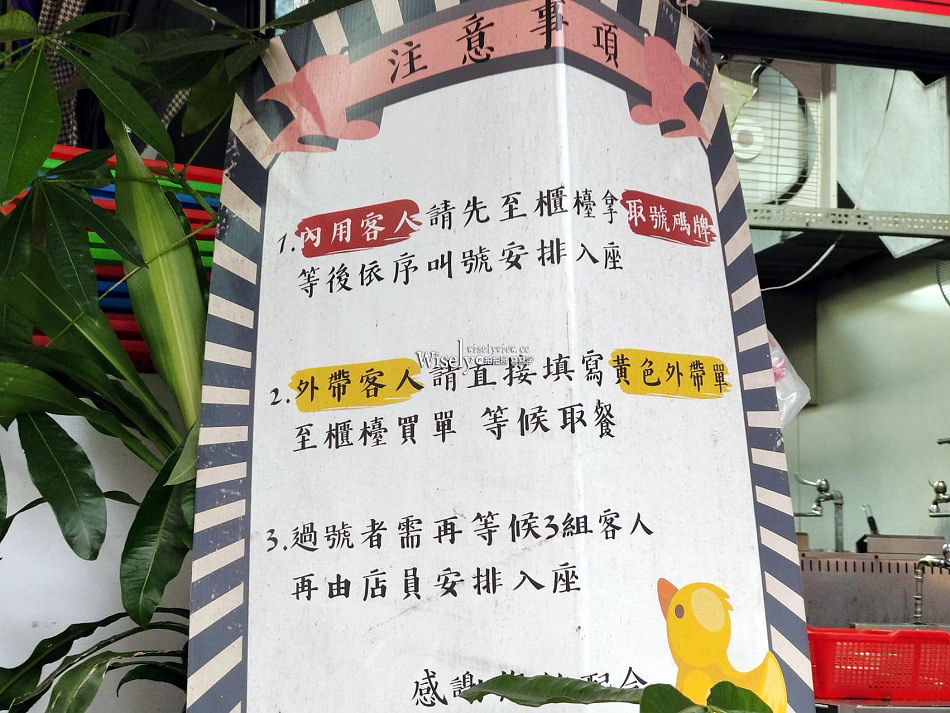 注意事項
1.內用客人請先至櫃檯拿取號碼牌
等後依序叫號安排入座
wiselyview.cc
Wisely
2.外帶客人請直接填寫黃色外帶單
至櫃檯買單 等候取餐
3.過號者需再等候3組客人
再由店員安排入座
感謝 配合